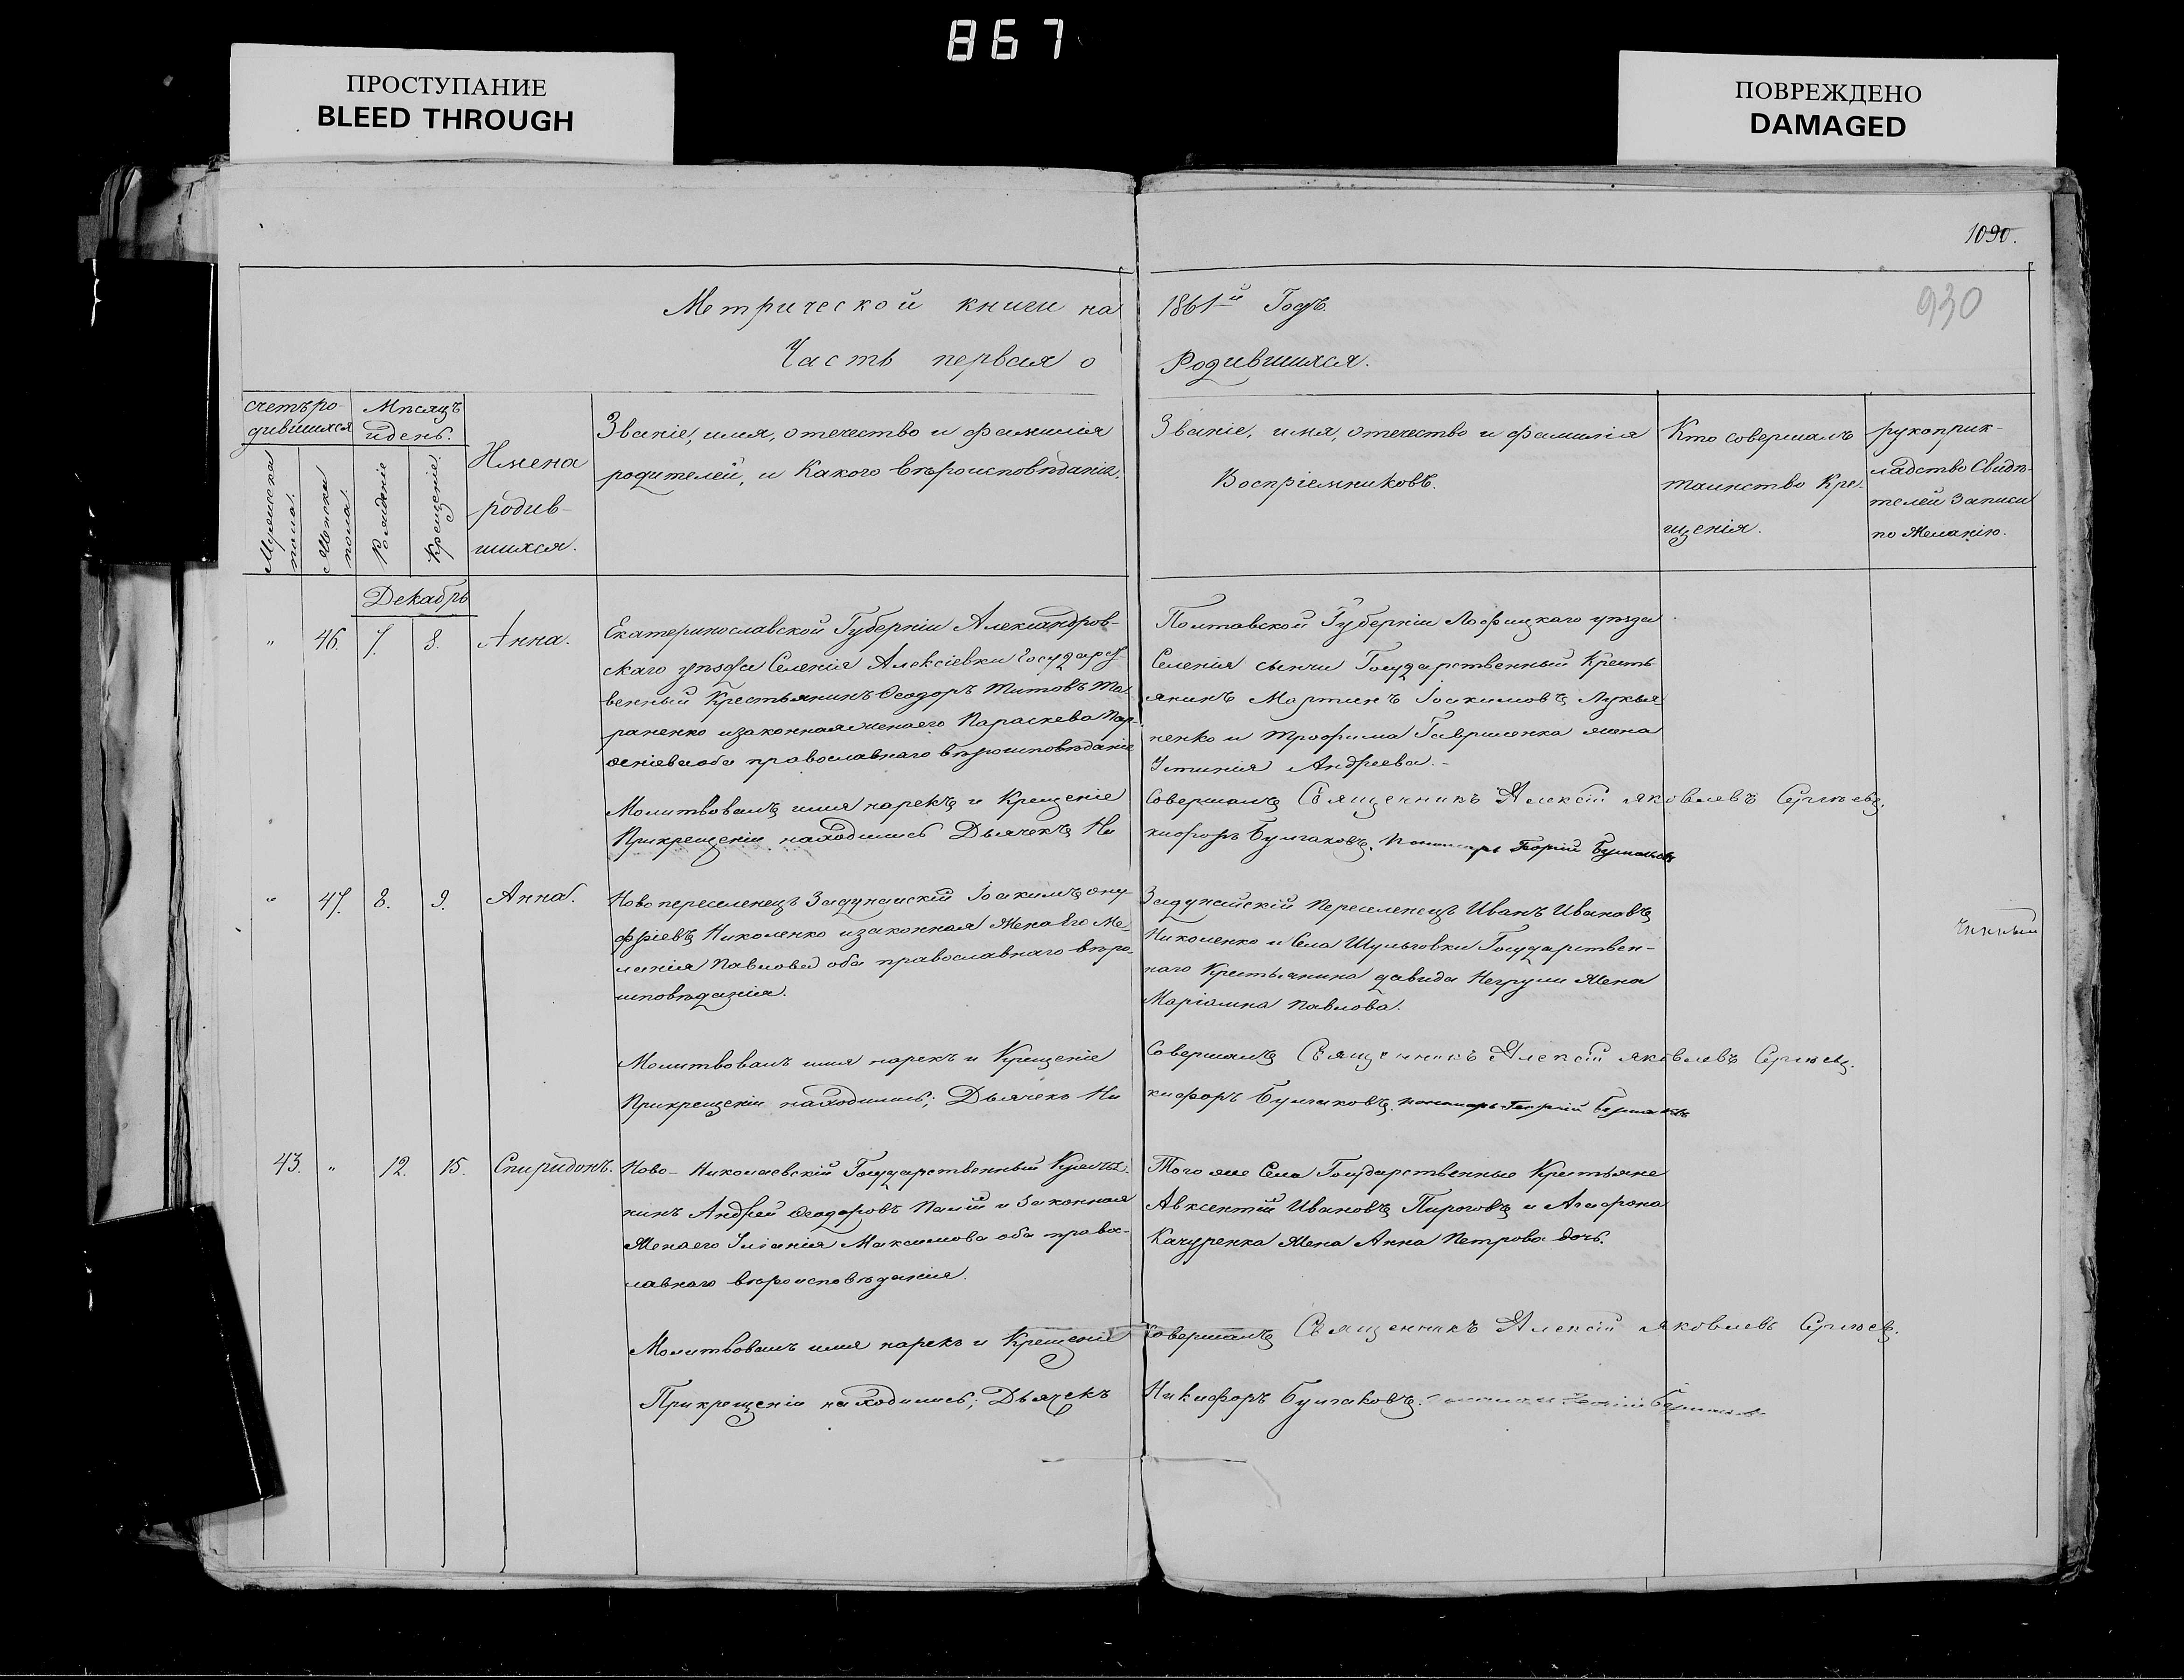 867
ПРОСТУПАНИЕ
BLEED THROUGH
ПОВРЕЖДЕНО
DAMAGED
1090.
930
Метрической книги на 1861й Годъ.
Часть первая о Родившихся.
счетъ ро-
дившихся
Мужеска
пола.
Женска
пола.
Мѣсяцъ
и день.
Рожденіе
Крещеніе.
Имена
родив-
шихся.
Званіе, имя, отечество и фамилія
родителей, и Какого вѣроисповѣданія.
Званіе, имя, отечество и фамилія
Воспріемниковъ.
Кто совершалъ
таинство Кре-
щенія.
рукоприк-
ладство Свидѣ-
телей Записи
по Желанію.
Декабрь
" 46. 7. 8. Анна.
Екатеринославской Губерніи Александров-
скаго уѣзда Селенія Алексіевки Государст-
венный Крестьянинъ Ѳеодоръ Титовъ Та-
раненко и законная жена его Параскева Пар-
ѳеніева оба православнаго вѣроисповѣданія
Полтавской Губерніи Лофицкаго уѣзда
Селенія Государственный Кресть-
янинъ Мартинъ Іоакимовъ Лукья
ненко и Трофима Гавриленка жена
Устинія Андреева.-
Молитвовалъ имя нарекъ и Крещеніе Совершалъ Священникъ Алексій Яковлевъ Сергѣевъ.
При крещеніи находились Дьячекъ Ни кифоръ Булгаковъ. Пономарь Георгій
" 47. 8. 9. Анна.
Ново переселенецъ Задунайскій Іоакимъ Ону-
фріевъ Николенко и законная Жена Его Ме-
ланія Павлова оба православнаго вѣро-
исповѣданія.
Задунайскій Переселенецъ Иванъ Ивановъ
Николенко и Села Шульговки Государствен-
наго Крестьянина Давида Негрули Жена
Маріамна Павлова.
Молитвовалъ имя нарекъ и Крещеніе Совершалъ Священникъ Алексій Яковлевъ Сергѣевъ.
При крещеніи находились; Дьячекъ Ни кифоръ Булгаковъ. пономарь Георгій
43. " 12. 15. Спиридонъ.
Ново-Николаевскій Государственный Крестья-
нинъ Андрей Ѳеодоровъ Палій и Законная
Жена его Іуліанія Максимова оба правос-
лавнаго вѣроисповѣданія.
Того же Села Государственные Крестьяне
Авксентій Ивановъ Пироговъ и Агафона
Качуренка Жена Анна Петрова дочь.
Молитвовалъ имя нарекъ и Крещеніе Совершалъ Священникъ Алексій Яковлевъ Сергѣевъ.
При крещеніи находились; Дьячекъ Никифоръ Булгаковъ.